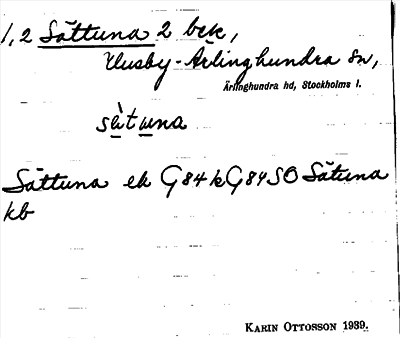 1,2 Sättuna 2 bek,
Husby-Ärlinghundra sn,
Ärlinghundra hd, Stockholms l.
sä̀tuna
Sättuna ek G84k G84SO Sätuna
kb
KARIN OTTOSSON 1939.